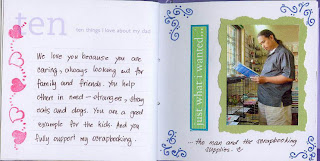 ten
ten things i love about my dad
We love you because you are
caring, always looking out for
family and friends. You help
others in need - strangers, stray
cats and dogs. You are a good
example for the kids. And you
fully support my scrapbooking.
just what i wanted...
... the man and the scrapbooking
supplies. ☺